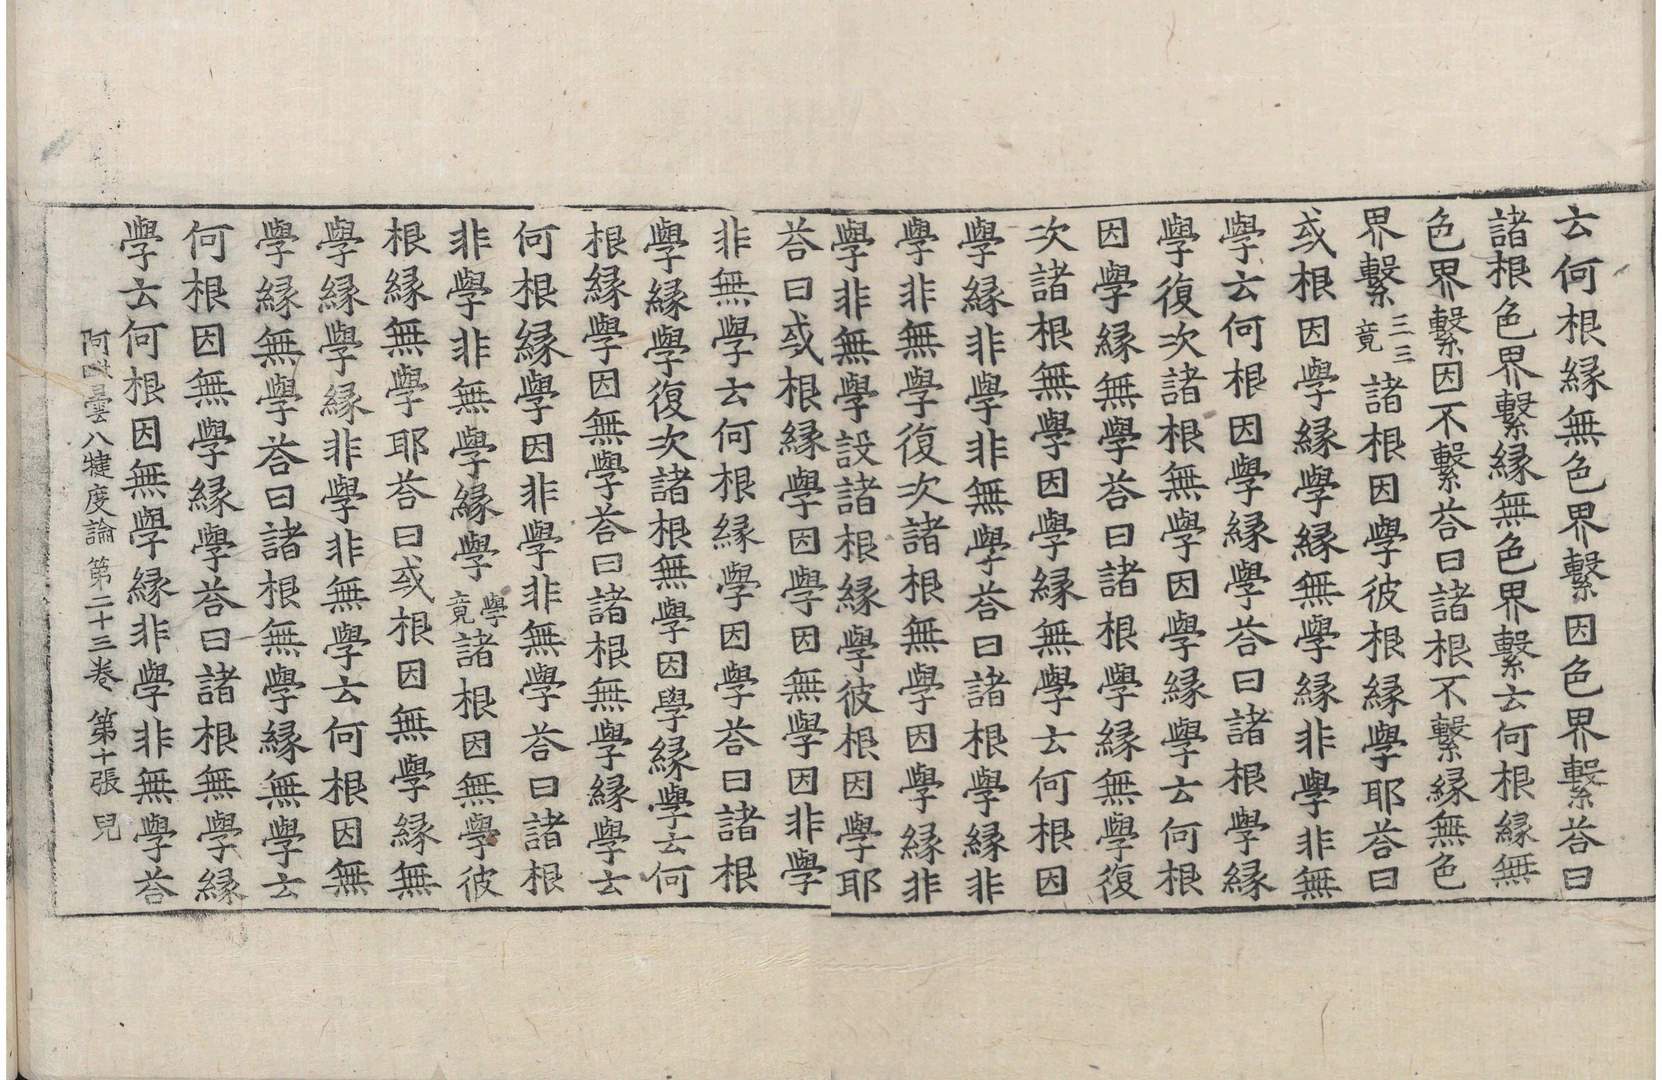 云何根縁無色界繫因色界繫荅曰
諸根色界繫縁無色界繫云何根縁無
色界繫因不繫荅曰諸根不繫縁無色
界繫三三竟諸根因學彼根縁學耶荅曰
或根因學縁學縁無學縁非學非無
學云何根因學縁學荅曰諸根學縁
學復次諸根無學因學縁學云何根
因學縁無學荅曰諸根學縁無學復
次諸根無學因學縁無學云何根因
學縁非學非無學荅曰諸根學縁非
學非無學復次諸根無學因學縁非
學非無學設諸根縁學彼根因學耶
荅曰或根縁學因學因無學因非學
非無學云何根縁學因學荅曰諸根
學縁學復次諸根無學因學縁學云何
根縁學因無學荅曰諸根無學縁學云
何根縁學因非學非無學荅曰諸根
非學非無學縁學學竟諸根因無學彼
根縁無學耶荅曰或根因無學縁無
學縁學縁非學非無學云何根因無
學縁無學荅曰諸根無學縁無學云
何根因無學縁學荅曰諸根無學縁
學云何根因無學縁非學非無學荅
阿毗曇八犍度論 第二十三卷 第十張 兒